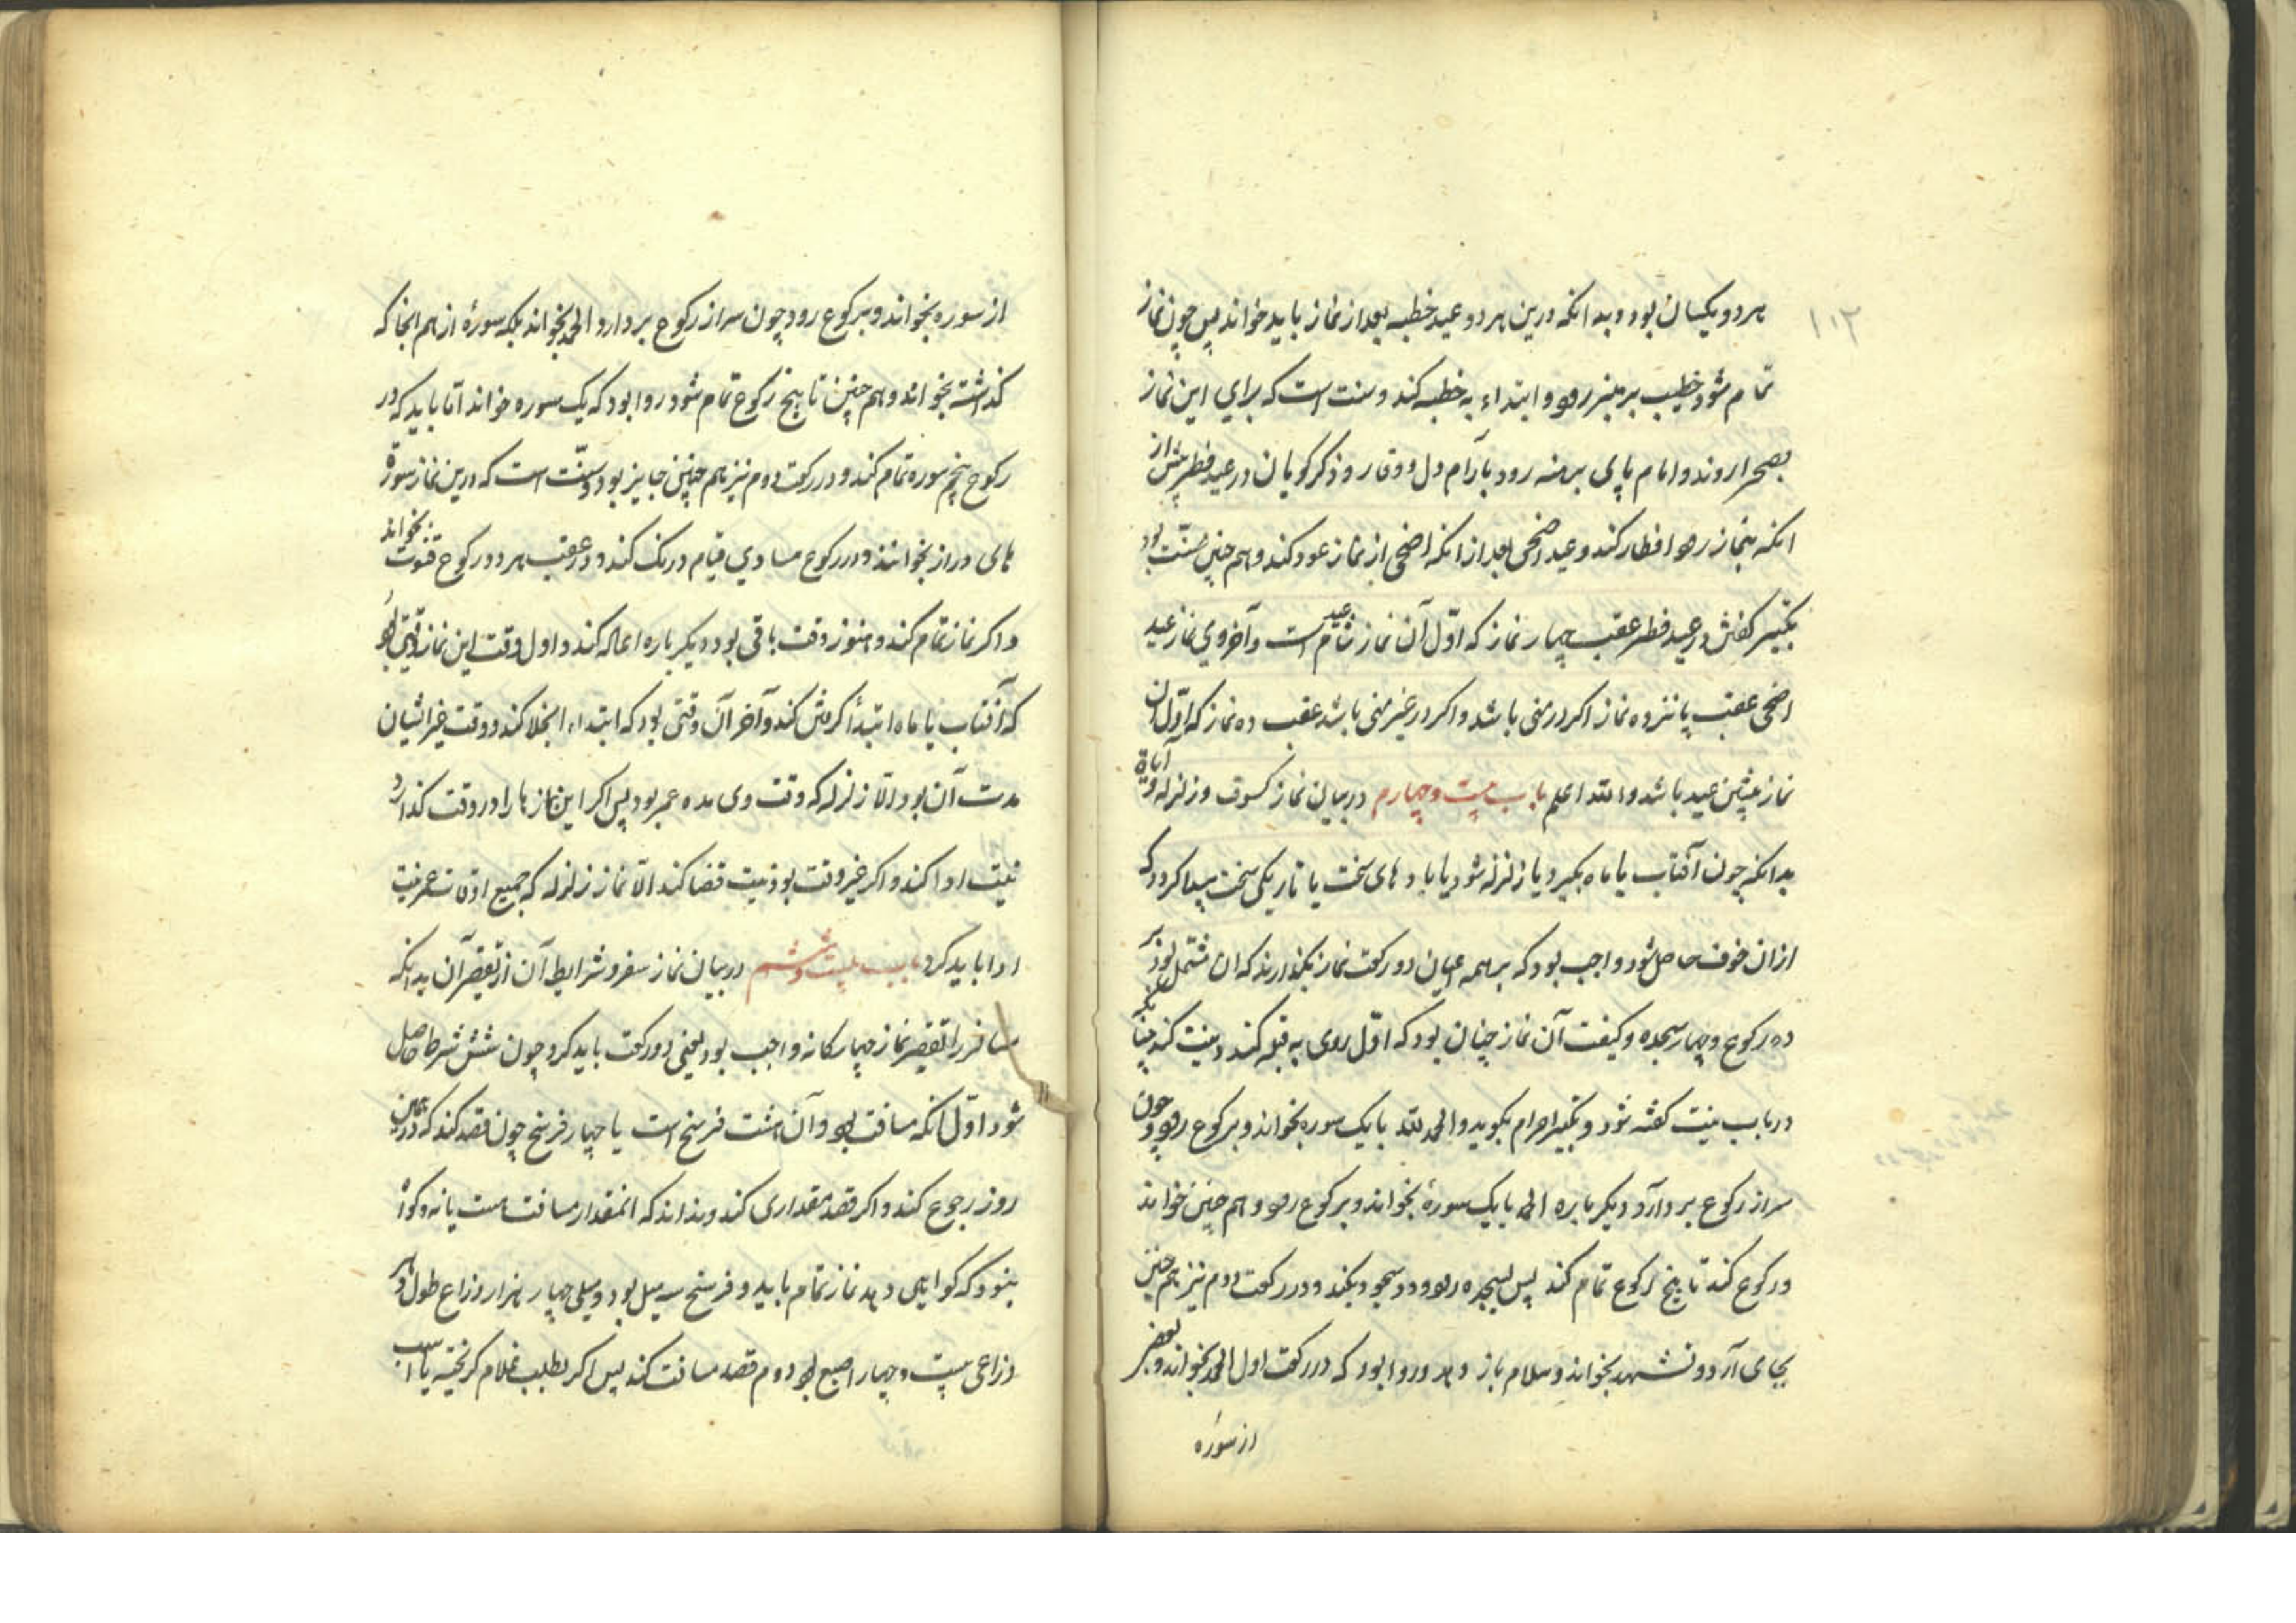 ۱۰۳
هر دو یکسان بود و بدانکه درین هر دو عید خطبه بعد از نماز باید خواند پس چون نماز
تمام شود خطیب بر منبر رود و ابتداء به خطبه کند و سنت است که برای این نماز
بصحرا روند و امام پای برهنه رود بآرام دل و وقار و ذکر گویان و در عید فطر پیش از
انکه بنماز رود افطار کند و عید اضحی بعد از انکه اضحی از نماز عود کند و هم چنین سنّت بود
تکبیر گفتن در عید فطر عقب چهار نماز که اوّل آن نماز شام عید است و آخر وی نماز عید
اضحی عقب پانزده نماز اکر در منی باشد و اکر در غیر منی باشد عقب ده نماز که اوّل آن
نماز پیشین عید باشد والله اعلم باب بیست و چهارم در بیان نماز کسوف و زلزله و آیات
بدانکه چون آفتاب یا ماه بگیرد یا زلزله شود یا باد های سخت یا تاریکی سخت پیدا کردد که
ازان خوف حاصل شود واجب بود که بر همه اعیان دو رکعت نماز بگذارند که ان مشتمل بود بر
ده رکوع و چهار سجده و کیفت آن نماز چنان بود که اوّل روی به قبله کند و نیت کند چنانکه
در باب نیت گفته شود و تکبیر احرام بگوید و الحمد لله با یک سوره بخواند و برکوع رود و چون
سر از رکوع بردارد دیگر باره الحمد با یک سورهٔ بخواند و برکوع رود و هم چنین خواند
و رکوع کند تا پنج رکوع تمام کند پس بسجده رود و دو سجود بکند و در رکعت دوم نیز هم چنین
بجای آرد و تشهد بخواند و سلام باز دهد و روا بود که در رکعت اول الحمد بخواند و بعضی
از سوره
از سوره بخواند و برکوع رود چون سر از رکوع بردارد الحمد نخواند بلکه سورهٔ از هم انجا که
گذاشته بخواند و هم چنین تا پنج رکوع تمام شود روا بود که یک سوره خواند امّا باید که در
رکوع پنجم سوره تمام کند و در رکعت دوم نیز هم چنین جایز بود و سنّت است که درین نماز سورة
های دراز بخوانند و در رکوع مساوی قیام درنک کند و در عقب هر دو رکوع قنوت بخواند
و اکر نماز تمام کند و هنوز وقت باقی بود دیگر باره اعاله کند و اول وقت این نماز وقتی بود
که آفتاب یا ماه ابتدأ گرفتن کند و آخر آن وقتی بود که ابتداء انجلا کند و وقت غیر ایشان
مدت آن بود الّا زلزله که وقت وی مده عمر بود پس اکر این نماز ها را در وقت گذارد
نیت ادا کند و اکر غیر وقت بود نیت قضا کند الّا نماز زلزله که جمیع اوقات عمر نیت
ادا باید کرد باب بیست و ششم در بیان نماز سفر و شرایط آن از تقصیر آن بدانکه
مسافر را تقصیر نماز چهار کانه واجب بود یعنی دو رکعت باید کرد چون شش شرط حاصل
شود اوّل انکه مسافت بود و آن هشت فرسخ است یا چهار فرسخ چون قصد کند که در همین
روز رجوع کند و اکر قصد مقداری کند و نداند که انمقدار مسافت هست یا نه و کواه
بنود که کواهی دهد نماز تمام باید و فرسخ سه میل بود و میلی چهار هزار ذراع طول و هر
ذراعی بیست و چهار اصبع بود دوم قصد مسافت کند پس اکر بطلب غلام کریخته یا اسب